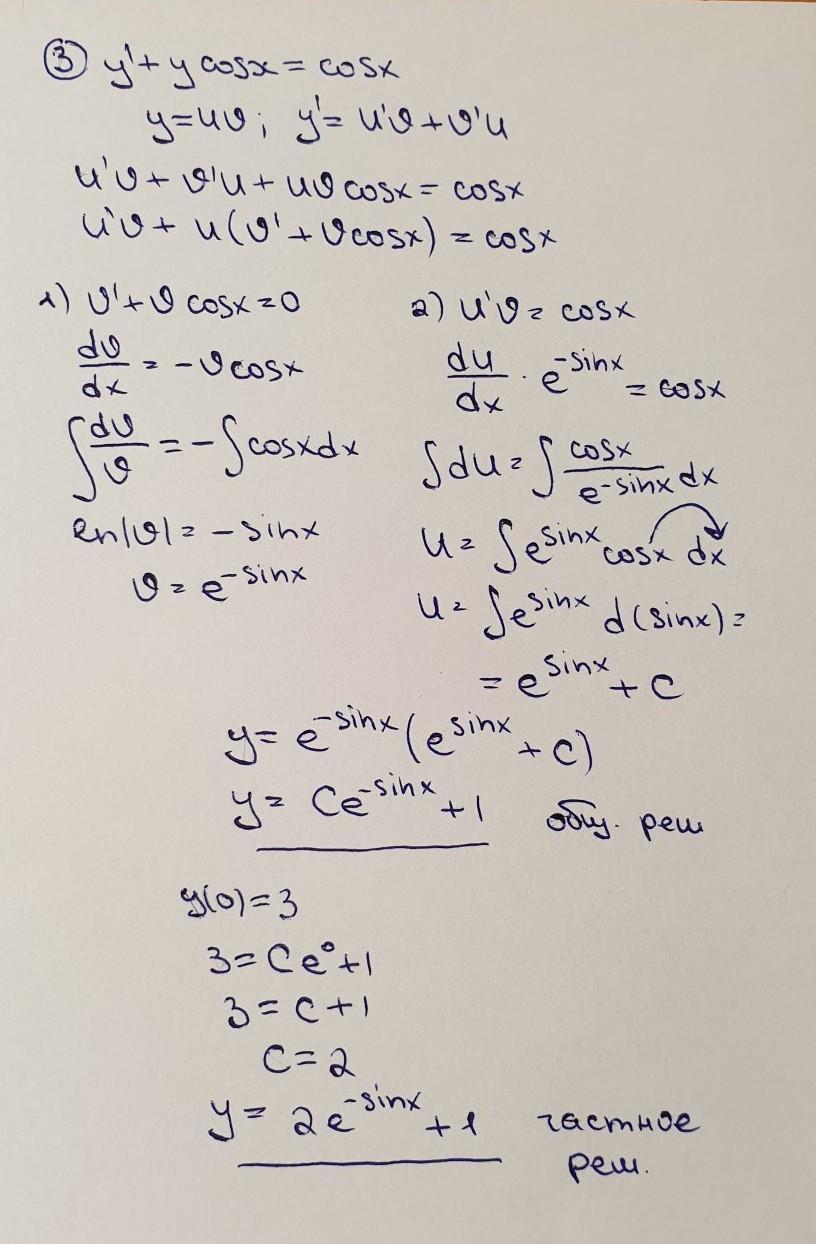 ③ y' + y cosx = cosx
y = uv; y' = u'v + v'u
u'v + v'u + uv cosx = cosx
u'v + u(v' + v cosx) = cosx
1) v' + v cosx = 0
dv/dx = -v cosx
∫ dv/v = -∫ cosx dx
ln|v| = -sinx
v = e^{-sinx}
2) u'v = cosx
du/dx · e^{-sinx} = cosx
∫ du = ∫ cosx/e^{-sinx} dx
u = ∫ e^{sinx} cosx dx
u = ∫ e^{sinx} d(sinx) =
= e^{sinx} + C
y = e^{-sinx}(e^{sinx} + C)
y = Ce^{-sinx} + 1 общ. реш
y(0) = 3
3 = Ce^0 + 1
3 = C + 1
C = 2
y = 2e^{-sinx} + 1 частное
реш.